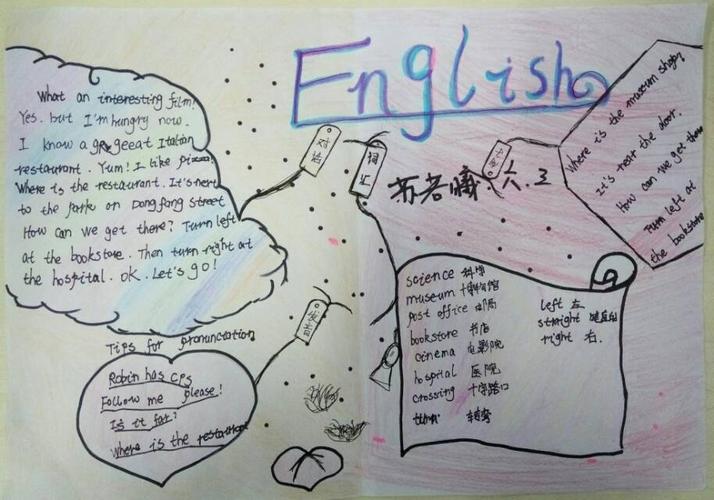 English
What an interesting film!
Yes. but I'm hungry now.
I know a geeat Italian
restaurant. Yum! I like pizza.
Where is the restaurant. It's next
to the park on Dongfang Street
How can we get there? Turn left
at the bookstore. Then turn right at
the hospital. ok. Let's go!
对话
词汇
六.3
Where is the museum shop?
It's near the door.
How can we get there
Turn left at
the bookstore
发音
Tips for pronunciation
Robin has GPS
Follow me please!
Is it far?
Where is the restaurant
science 科学
museum 博物馆
post office 邮局
bookstore 书店
cinema 电影院
hospital 医院
crossing 十字路口
turn 转弯
left 左
right 右.